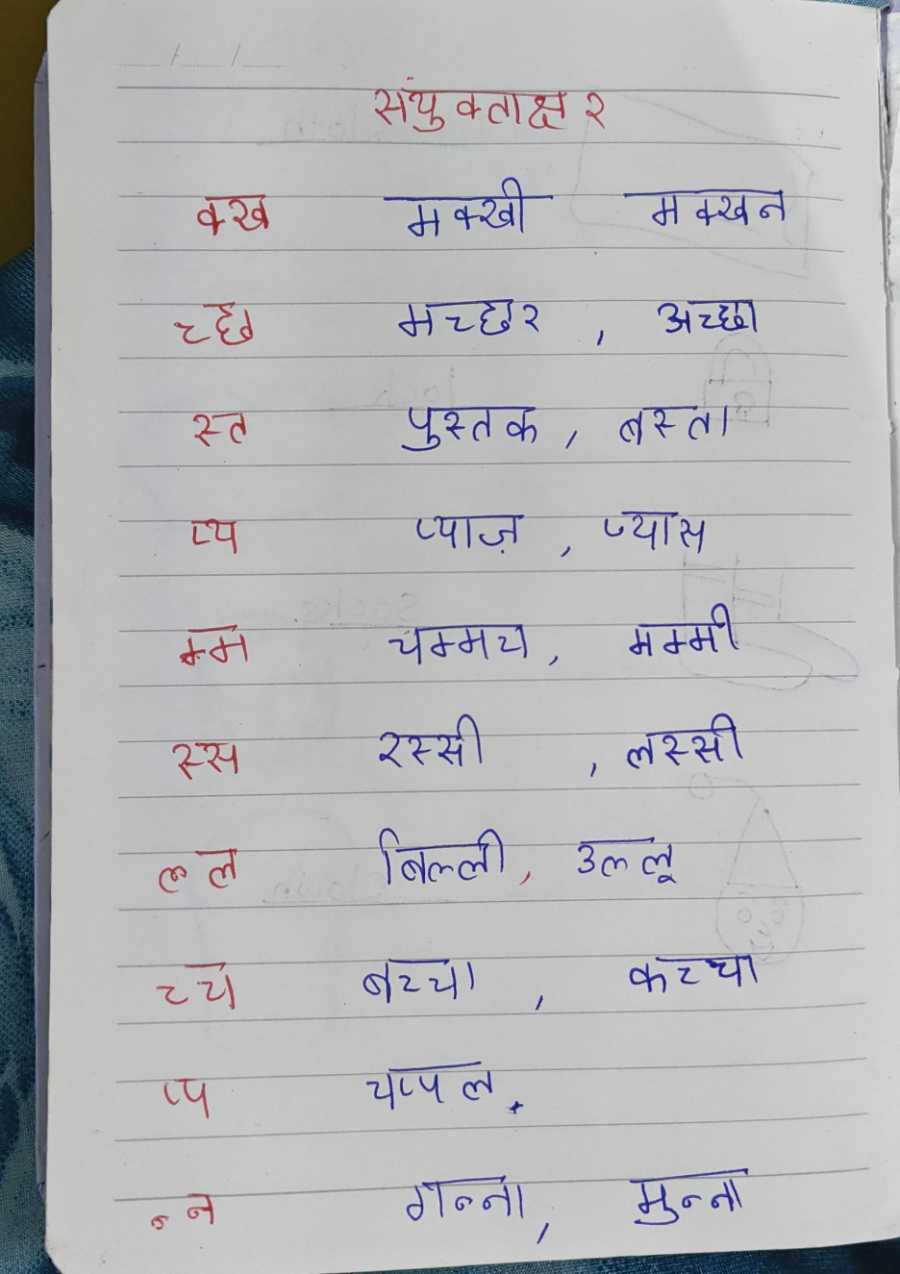 संयुक्ताक्षर
क्ख मक्खी मक्खन
च्छ मच्छर , अच्छा
स्त पुस्तक , बस्ता
प्य प्याज़ , प्यास
म्म चम्मच , मम्मी
स्स रस्सी , लस्सी
ल्ल बिल्ली , उल्लू
च्च बच्चा , कच्चा
प्प चप्पल .
न्न गन्ना , मुन्ना